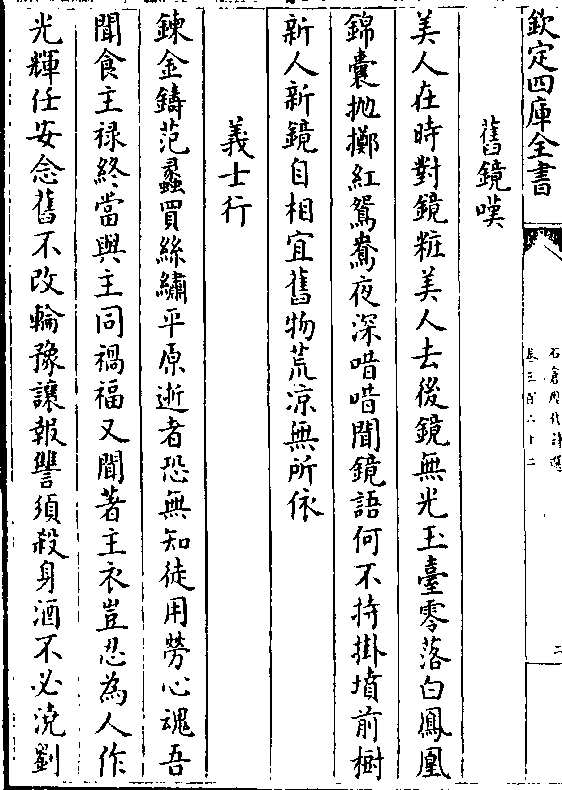 欽定四庫全書
石倉歷代詩選
卷三百六十二
二
舊鏡嘆
美人在時對鏡粧美人去後鏡無光玉臺零落白鳳凰
錦囊拋擲紅鴛鴦夜深唶唶聞鏡語何不持掛墳前樹
新人新鏡自相宜舊物荒涼無所依
義士行
鍊金鑄范蠡買絲繡平原逝者恐無知徒用勞心魂吾
聞食主禄終當與主同禍福又聞著主衣豈忍為人作
光輝任安念舊不改輪豫讓報讐須殺身酒不必澆劉